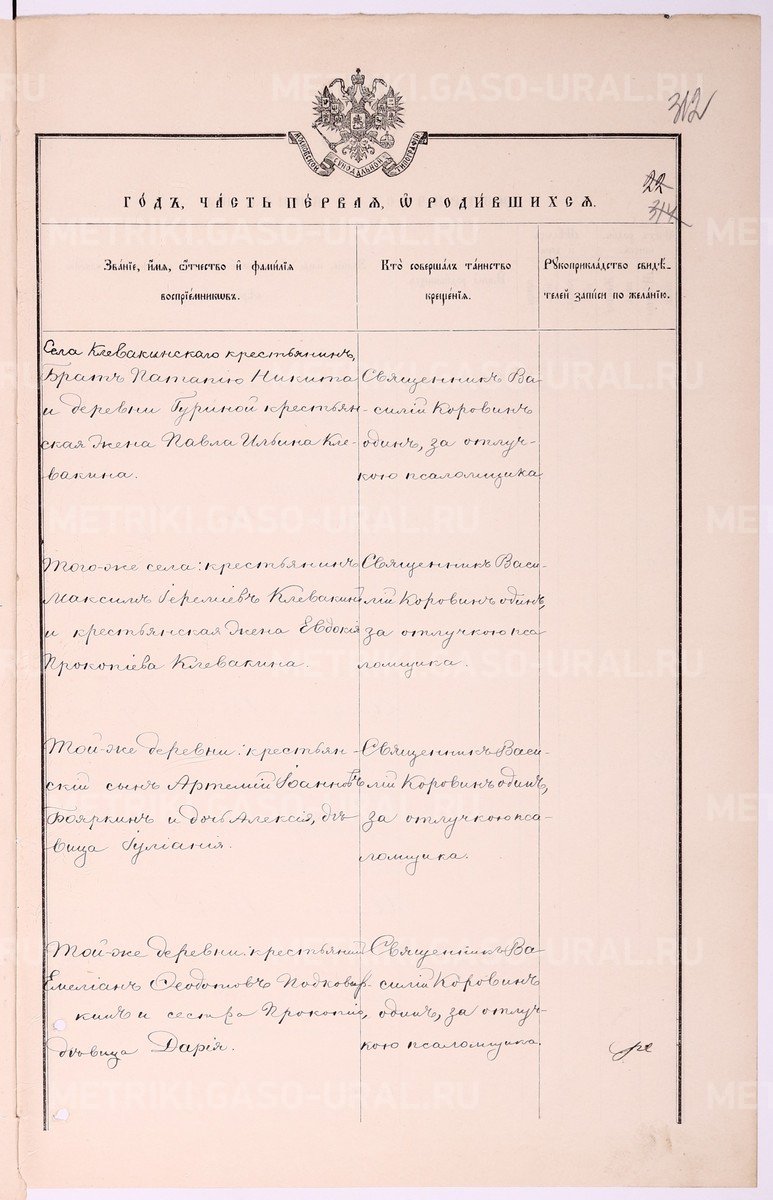 312
МОСКОВСКОЙ СѴНОДАЛЬНОЙ ТИПОГРАФІИ
22
314
ГОДЪ, ЧАСТЬ ПЕРВАЯ, Ѡ РОДИВШИХСЯ.
Званіе, имя, ѿчество и фамилія
воспріемниковъ.
Кто совершалъ таинство
крещенія.
Рукоприкладство свидѣ-
телей записи по желанію.
Села Клевакинскаго крестьянинъ,
Братъ Патапію Никита
и деревни Гуриной крестьян
ская жена Павла Ильина Кле-
вакина.
Священникъ Ва-
силій Коровинъ
одинъ, за отлуч-
кою псаломщика
Того-же села: крестьянинъ
Максимъ Іереміевъ Клевакинъ
и крестьянская жена Евдокія
Прокопіева Клевакина.
Священникъ Васи-
лій Коровинъ одинъ,
за отлучкою пса-
ломщика.
Той-же деревни: крестьян-
скій сынъ Артемій Іоанновъ
Бояркинъ и дочь Алексія, дѣ-
вица Іуліанія.
Священникъ Васи-
лій Коровинъ одинъ,
за отлучкою пса-
ломщика.
Той-же деревни: крестьянинъ
Емеліанъ Ѳеодотовъ Подковыр-
кинъ и сестра Прокопія,
дѣвица Дарія.
Священникъ Ва-
силій Коровинъ
одинъ, за отлуч-
кою псаломщика.
METRIKI.GASO-URAL.RU